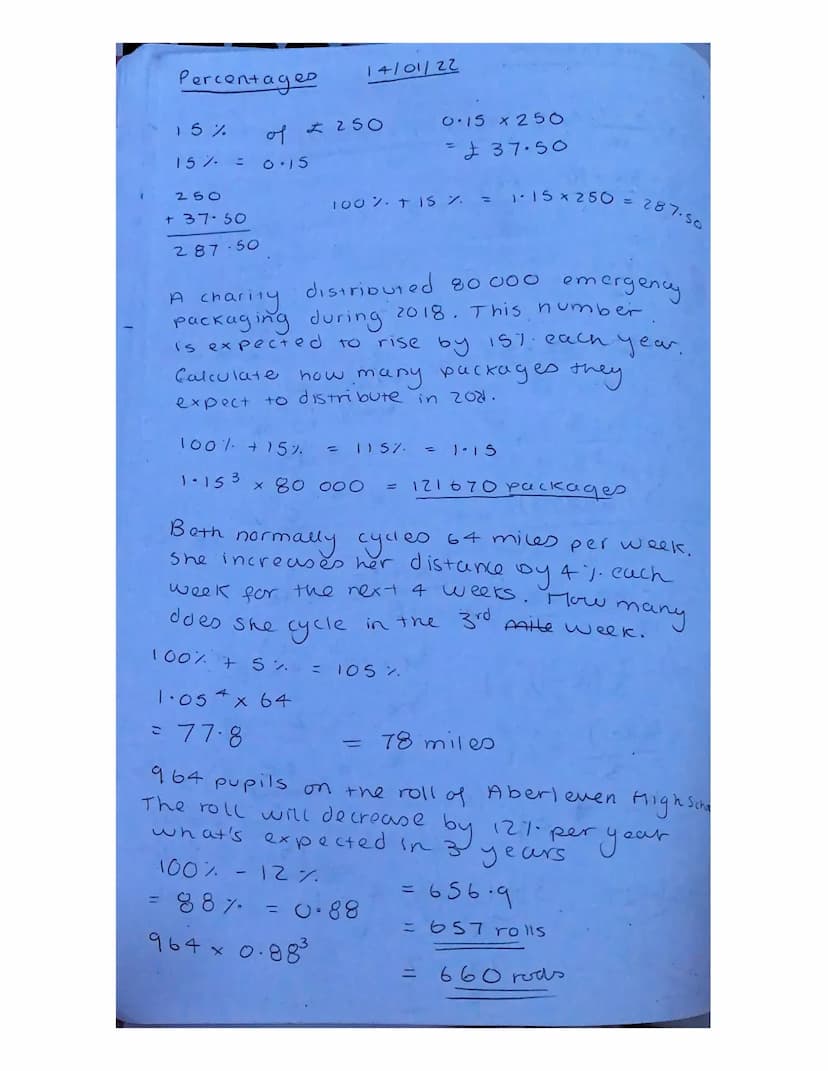 Percentages 14/01/22
15% of £250 0.15 × 250
15% = 0.15 = £37.50
250
+ 37.50 100% + 15% = 1.15 × 250 = 287.50
287.50
A charity distributed 80 000 emergency
packaging during 2018. This number
is expected to rise by 15% each year.
Calculate how many packages they
expect to distribute in
100% + 15% = 115% = 1.15
1.15³ × 80 000 = 121670 packages
Beth normally cycles 64 miles per week.
She increases her distance by 4% each
week for the next 4 weeks. How many
does she cycle in the 3rd mile week.
100% + 5% = 105%
1.05⁴ × 64
= 77.8 = 78 miles
964 pupils on the roll of High Scho
The roll will decrease by 12% per year
what's expected in 3 years
100% - 12% = 656.9
= 88% = 0.88 = 657 rolls
964 × 0.88³ = 660